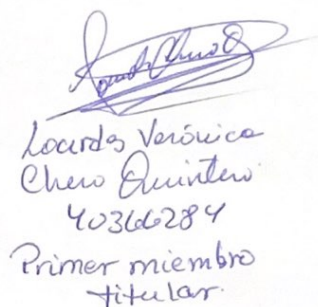 Lourdes Verónica
Chero Quintero
40366284
Primer miembro
titular.